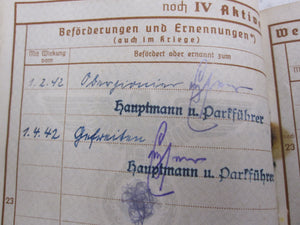 noch IV Aktive
Beförderungen und Ernennungen*)
(auch im Kriege)
Mit Wirkung vom
Befördert oder ernannt zum
1.2.42 Oberpionier
Hauptmann u. Parkführer
1.4.42 Gefreiten
Hauptmann u. Parkführer
23
23